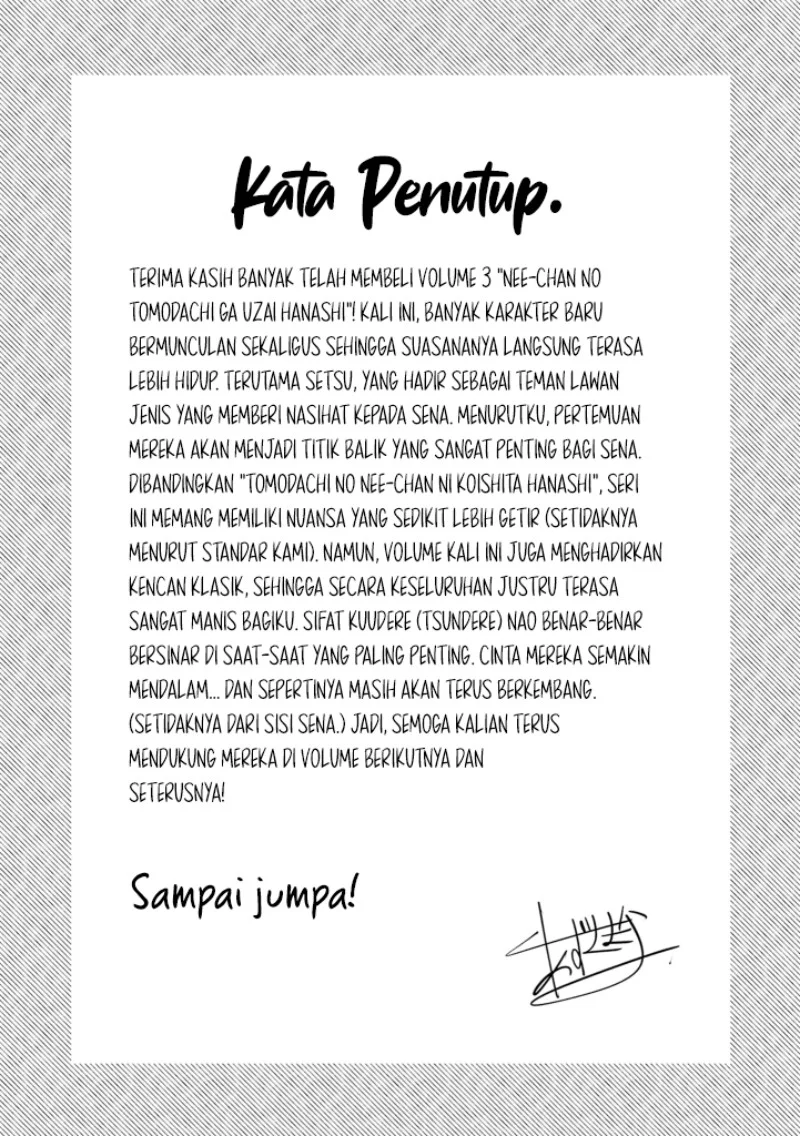 Kata Penutup.
TERIMA KASIH BANYAK TELAH MEMBELI VOLUME 3 "NEE-CHAN NO
TOMODACHI GA UZAI HANASHI"! KALI INI, BANYAK KARAKTER BARU
BERMUNCULAN SEKALIGUS SEHINGGA SUASANANYA LANGSUNG TERASA
LEBIH HIDUP. TERUTAMA SETSU, YANG HADIR SEBAGAI TEMAN LAWAN
JENIS YANG MEMBERI NASIHAT KEPADA SENA. MENURUTKU, PERTEMUAN
MEREKA AKAN MENJADI TITIK BALIK YANG SANGAT PENTING BAGI SENA.
DIBANDINGKAN "TOMODACHI NO NEE-CHAN NI KOISHITA HANASHI", SERI
INI MEMANG MEMILIKI NUANSA YANG SEDIKIT LEBIH GETIR (SETIDAKNYA
MENURUT STANDAR KAMI). NAMUN, VOLUME KALI INI JUGA MENGHADIRKAN
KENCAN KLASIK, SEHINGGA SECARA KESELURUHAN JUSTRU TERASA
SANGAT MANIS BAGIKU. SIFAT KUUDERE (TSUNDERE) NAO BENAR-BENAR
BERSINAR DI SAAT-SAAT YANG PALING PENTING. CINTA MEREKA SEMAKIN
MENDALAM... DAN SEPERTINYA MASIH AKAN TERUS BERKEMBANG.
(SETIDAKNYA DARI SISI SENA.) JADI, SEMOGA KALIAN TERUS
MENDUKUNG MEREKA DI VOLUME BERIKUTNYA DAN
SETERUSNYA!
Sampai jumpa!